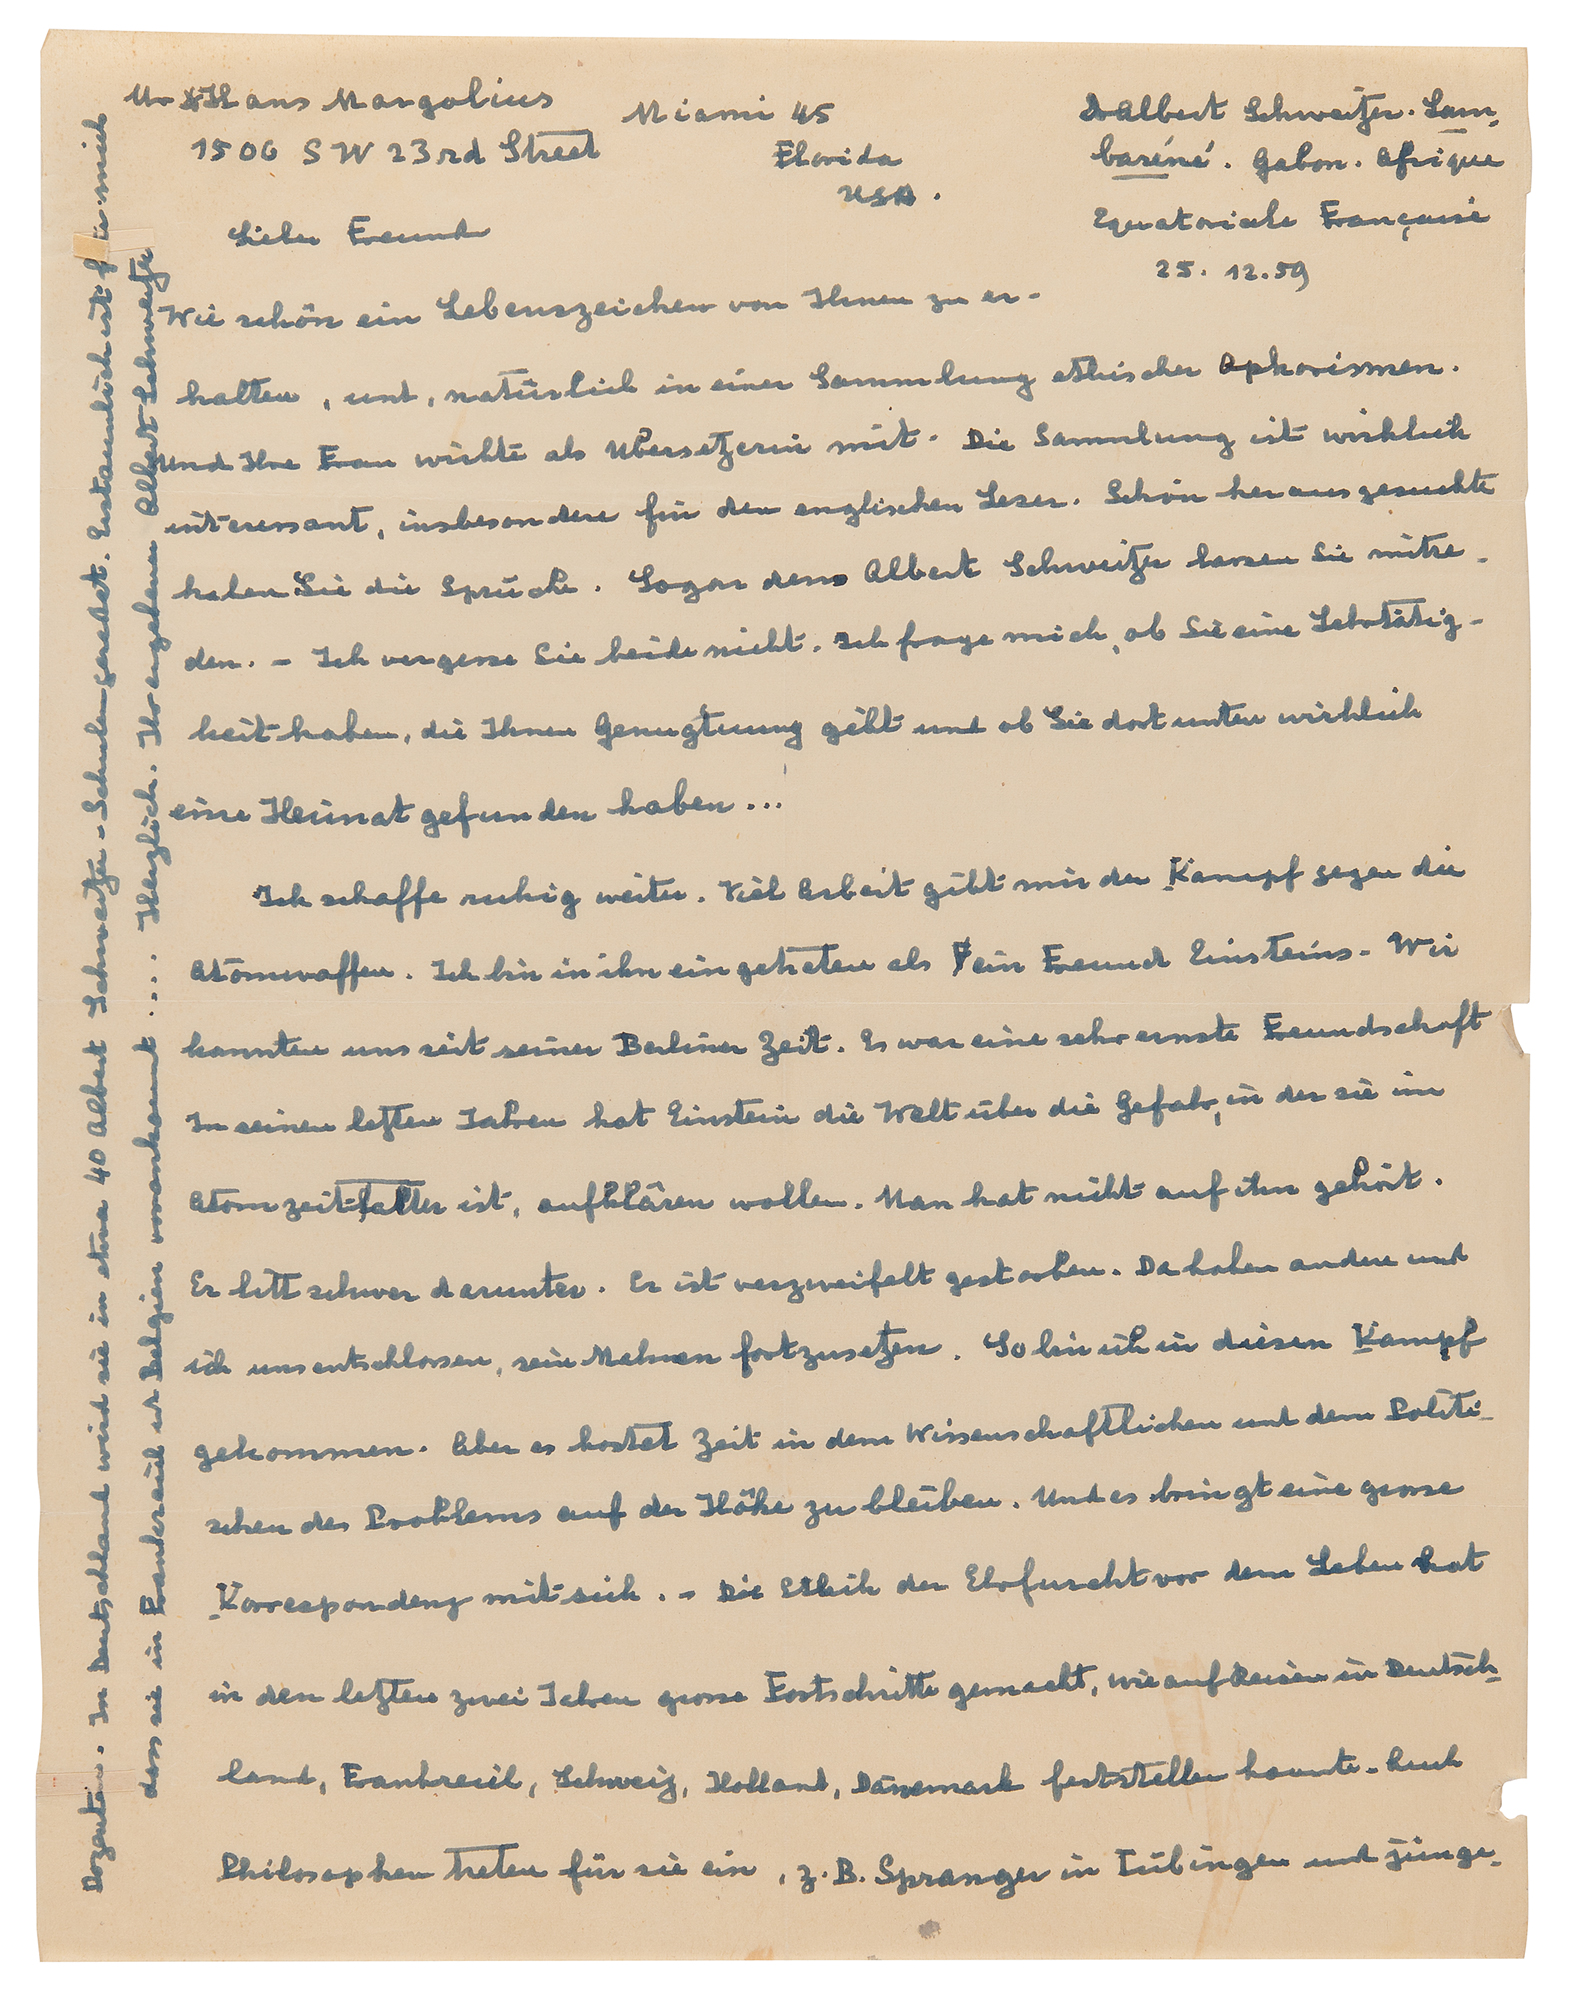 Mr Hans Margolius
1506 SW 23rd Street
Miami 45
Florida
USA.
Dr Albert Schweitzer. Lam-
baréné. Gabon. Afrique
Equatoriale Française
25. 12. 59
Lieber Freund
Wie schön ein Lebenszeichen von Ihnen zu er-
halten, und, natürlich in einer Sammlung ethischer Aphorismen.
Und Ihre Frau wirkte als Übersetzerin mit. Die Sammlung ist wirklich
interessant, insbesondere für den englischen Leser. Schön herausgesuchte
haben Sie die Sprüche. Sogar dem Albert Schweitzer lassen Sie mitre-
den. - Ich vergesse Sie beide nicht. Ich frage mich, ob Sie eine Lehrtätig-
keit haben, die Ihnen Genugtuung gibt und ob Sie dort unten wirklich
eine Heimat gefunden haben...
Ich schaffe ruhig weiter. Viel Arbeit gibt mir der Kampf gegen die
Atomwaffen. Ich bin in ihn eingetreten als ein Freund Einsteins. Wir
kannten uns seit seiner Berliner Zeit. Es war eine sehr ernste Freundschaft
In seinen letzten Jahren hat Einstein die Welt über die Gefahr, in der sie im
Atomzeitalter ist, aufklären wollen. Man hat nicht auf ihn gehört.
Er litt schwer darunter. Er ist verzweifelt gestorben. Da haben andere und
ich uns entschlossen, sein Mahnen fortzusetzen. So bin ich in diesen Kampf
gekommen. Aber es kostet Zeit in dem Wissenschaftlichen und dem Politi-
schen des Problems auf der Höhe zu bleiben. Und es bringt eine grosse
Korrespondenz mit sich. - Die Ethik der Ehrfurcht vor dem Leben hat
in den letzten zwei Jahren grosse Fortschritte gemacht, wie auf Reisen in Deutsch-
land, Frankreich, Schweiz, Holland, Dänemark feststellen konnte. Auch
Philosophen treten für sie ein, z. B. Spranger in Tübingen und jünge-
Dozenten. In Deutschland wird sie in etwa 40 Albert Schweitzer-Schulen geredet. Erstaunlich ist für mich
dass sie in Frankreich und Belgien vorankommt .... Herzlich. Ihr ergebener Albert Schweitzer